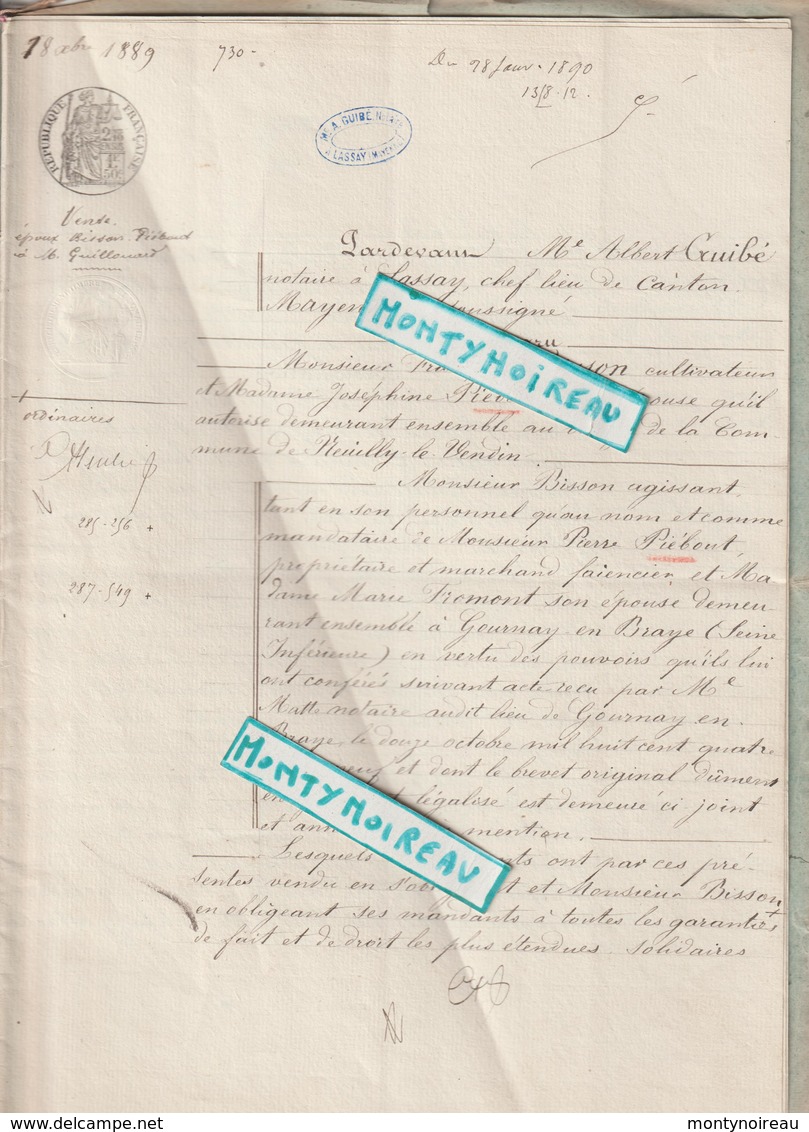 18 xbre 1889
730 -
Du 28 Janv. 1890
13/8 - 12 .
RÉPUBLIQUE FRANÇAISE
Me A. GUIBÉ, NOTAIRE
A LASSAY (MAYENNE)
Vente.
époux Bisson-Piébout
à M. Guillouard
Pardevant Me Albert Guibé
notaire à Lassay, chef lieu de Canton
Mayen soussigné
MONTYNOIREAU
Monsieur Fr sson cultivateur
et Madame Joséphine Piéb ouse qu'il
ordinaires
autorise demeurant ensemble au de la Com
mune de Neuilly-le-Vendin.
Monsieur Bisson agissant
tant en son personnel qu'au nom et comme
285-256 +
mandataire de Monsieur Pierre Piébout,
propriétaire et marchand faiencier, et Ma
287-549 +
dame Marie Fromont son épouse demeu
rant ensemble à Gournay en Braye (Seine
Inférieure) en vertu des pouvoirs qu'ils lui
ont conférés suivant acte reçu par Me
Matte notaire audit lieu de Gournay en
Braye, le douze octobre mil huit cent quatre
neuf et dont le brevet original dûment
MONTYNOIREAU
en t légalisé est demeuré ci joint
et ann mention.
Lesquels nts ont par ces pré-
sentes vendu en s'ob t et Monsieur Bisson
en obligeant ses mandants à toutes les garanties
de fait et de droit les plus étendues solidaires
delcampe.net
montynoireau